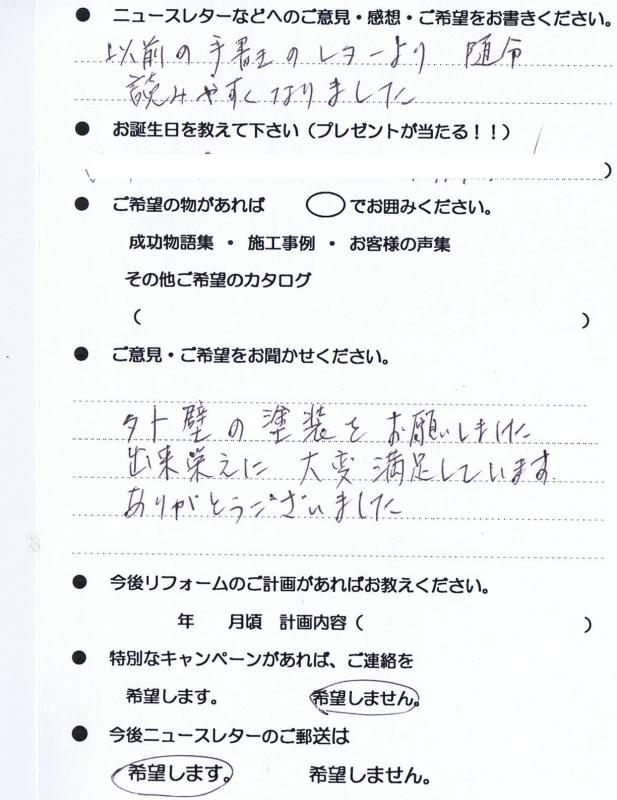 ● ニュースレターなどへのご意見・感想・ご希望をお書きください。
以前の手書きのレターより 随分
読みやすくなりました
● お誕生日を教えて下さい(プレゼントが当たる！！)
)
● ご希望の物があれば ◯でお囲みください。
成功物語集 ・ 施工事例 ・ お客様の声集
その他ご希望のカタログ
( )
● ご意見・ご希望をお聞かせください。
外壁の塗装をお願いしました
出来栄えに 大変満足しています
ありがとうございました
● 今後リフォームのご計画があればお教えください。
年 月頃 計画内容( )
● 特別なキャンペーンがあれば、ご連絡を
希望します。 希望しません。
● 今後ニュースレターのご郵送は
希望します。 希望しません。